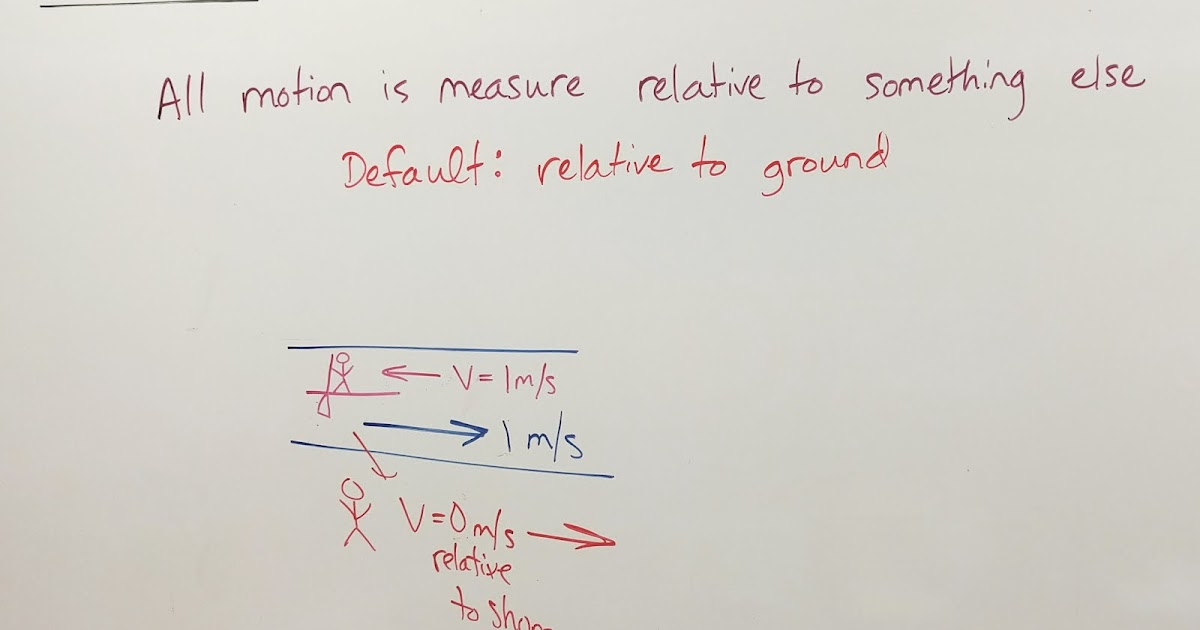 All motion is measure relative to something else
Default: relative to ground
V=1m/s
1 m/s
V=0m/s
relative
to